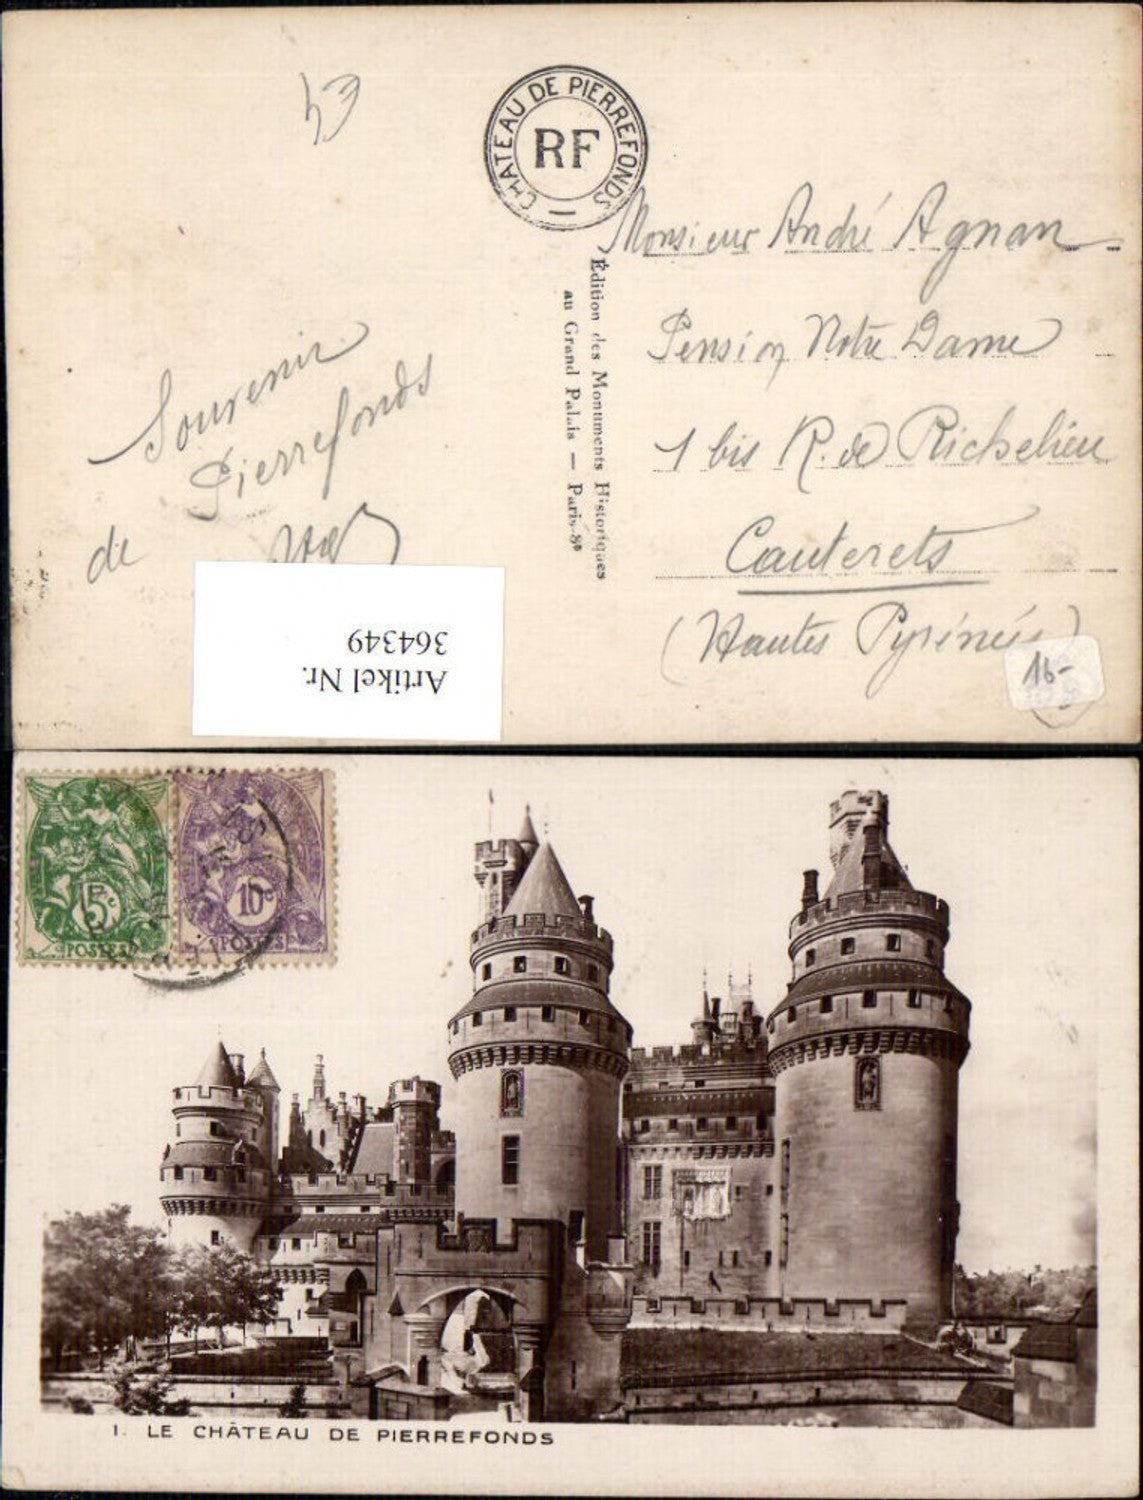 CHATEAU DE PIERREFONDS
RF
Monsieur André Agnan
Pension Notre Dame
1 bis R. de Richelieu
Cauterets
(Hautes Pyrénées)
16-
Édition des Monuments Historiques
au Grand Palais — Paris-8e
Souvenir
de Pierrefonds
Artikel Nr.
364349
5c
POSTES
10c
POSTES
1. LE CHÂTEAU DE PIERREFONDS